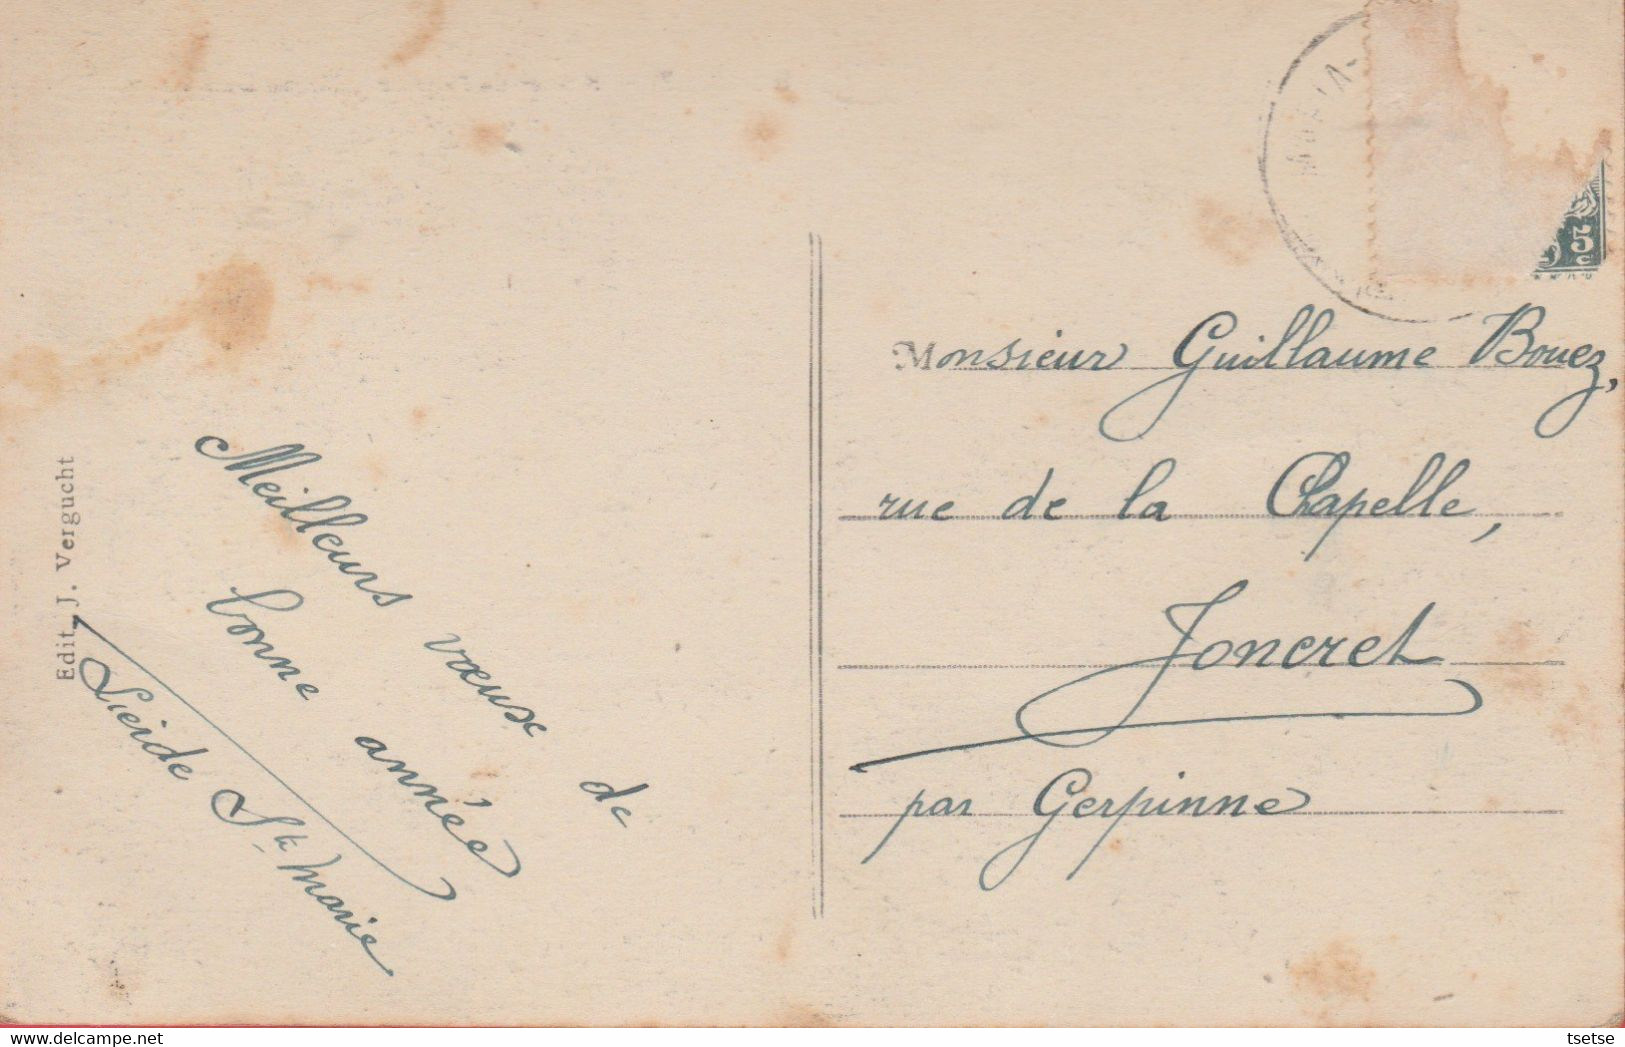 Edit. J. Vergucht
Meilleurs vœux de
bonne année
Léide Ste Marie
5
c
Monsieur Guillaume Bouez,
rue de la Chapelle,
Joncret
par Gerpinne
tsetse